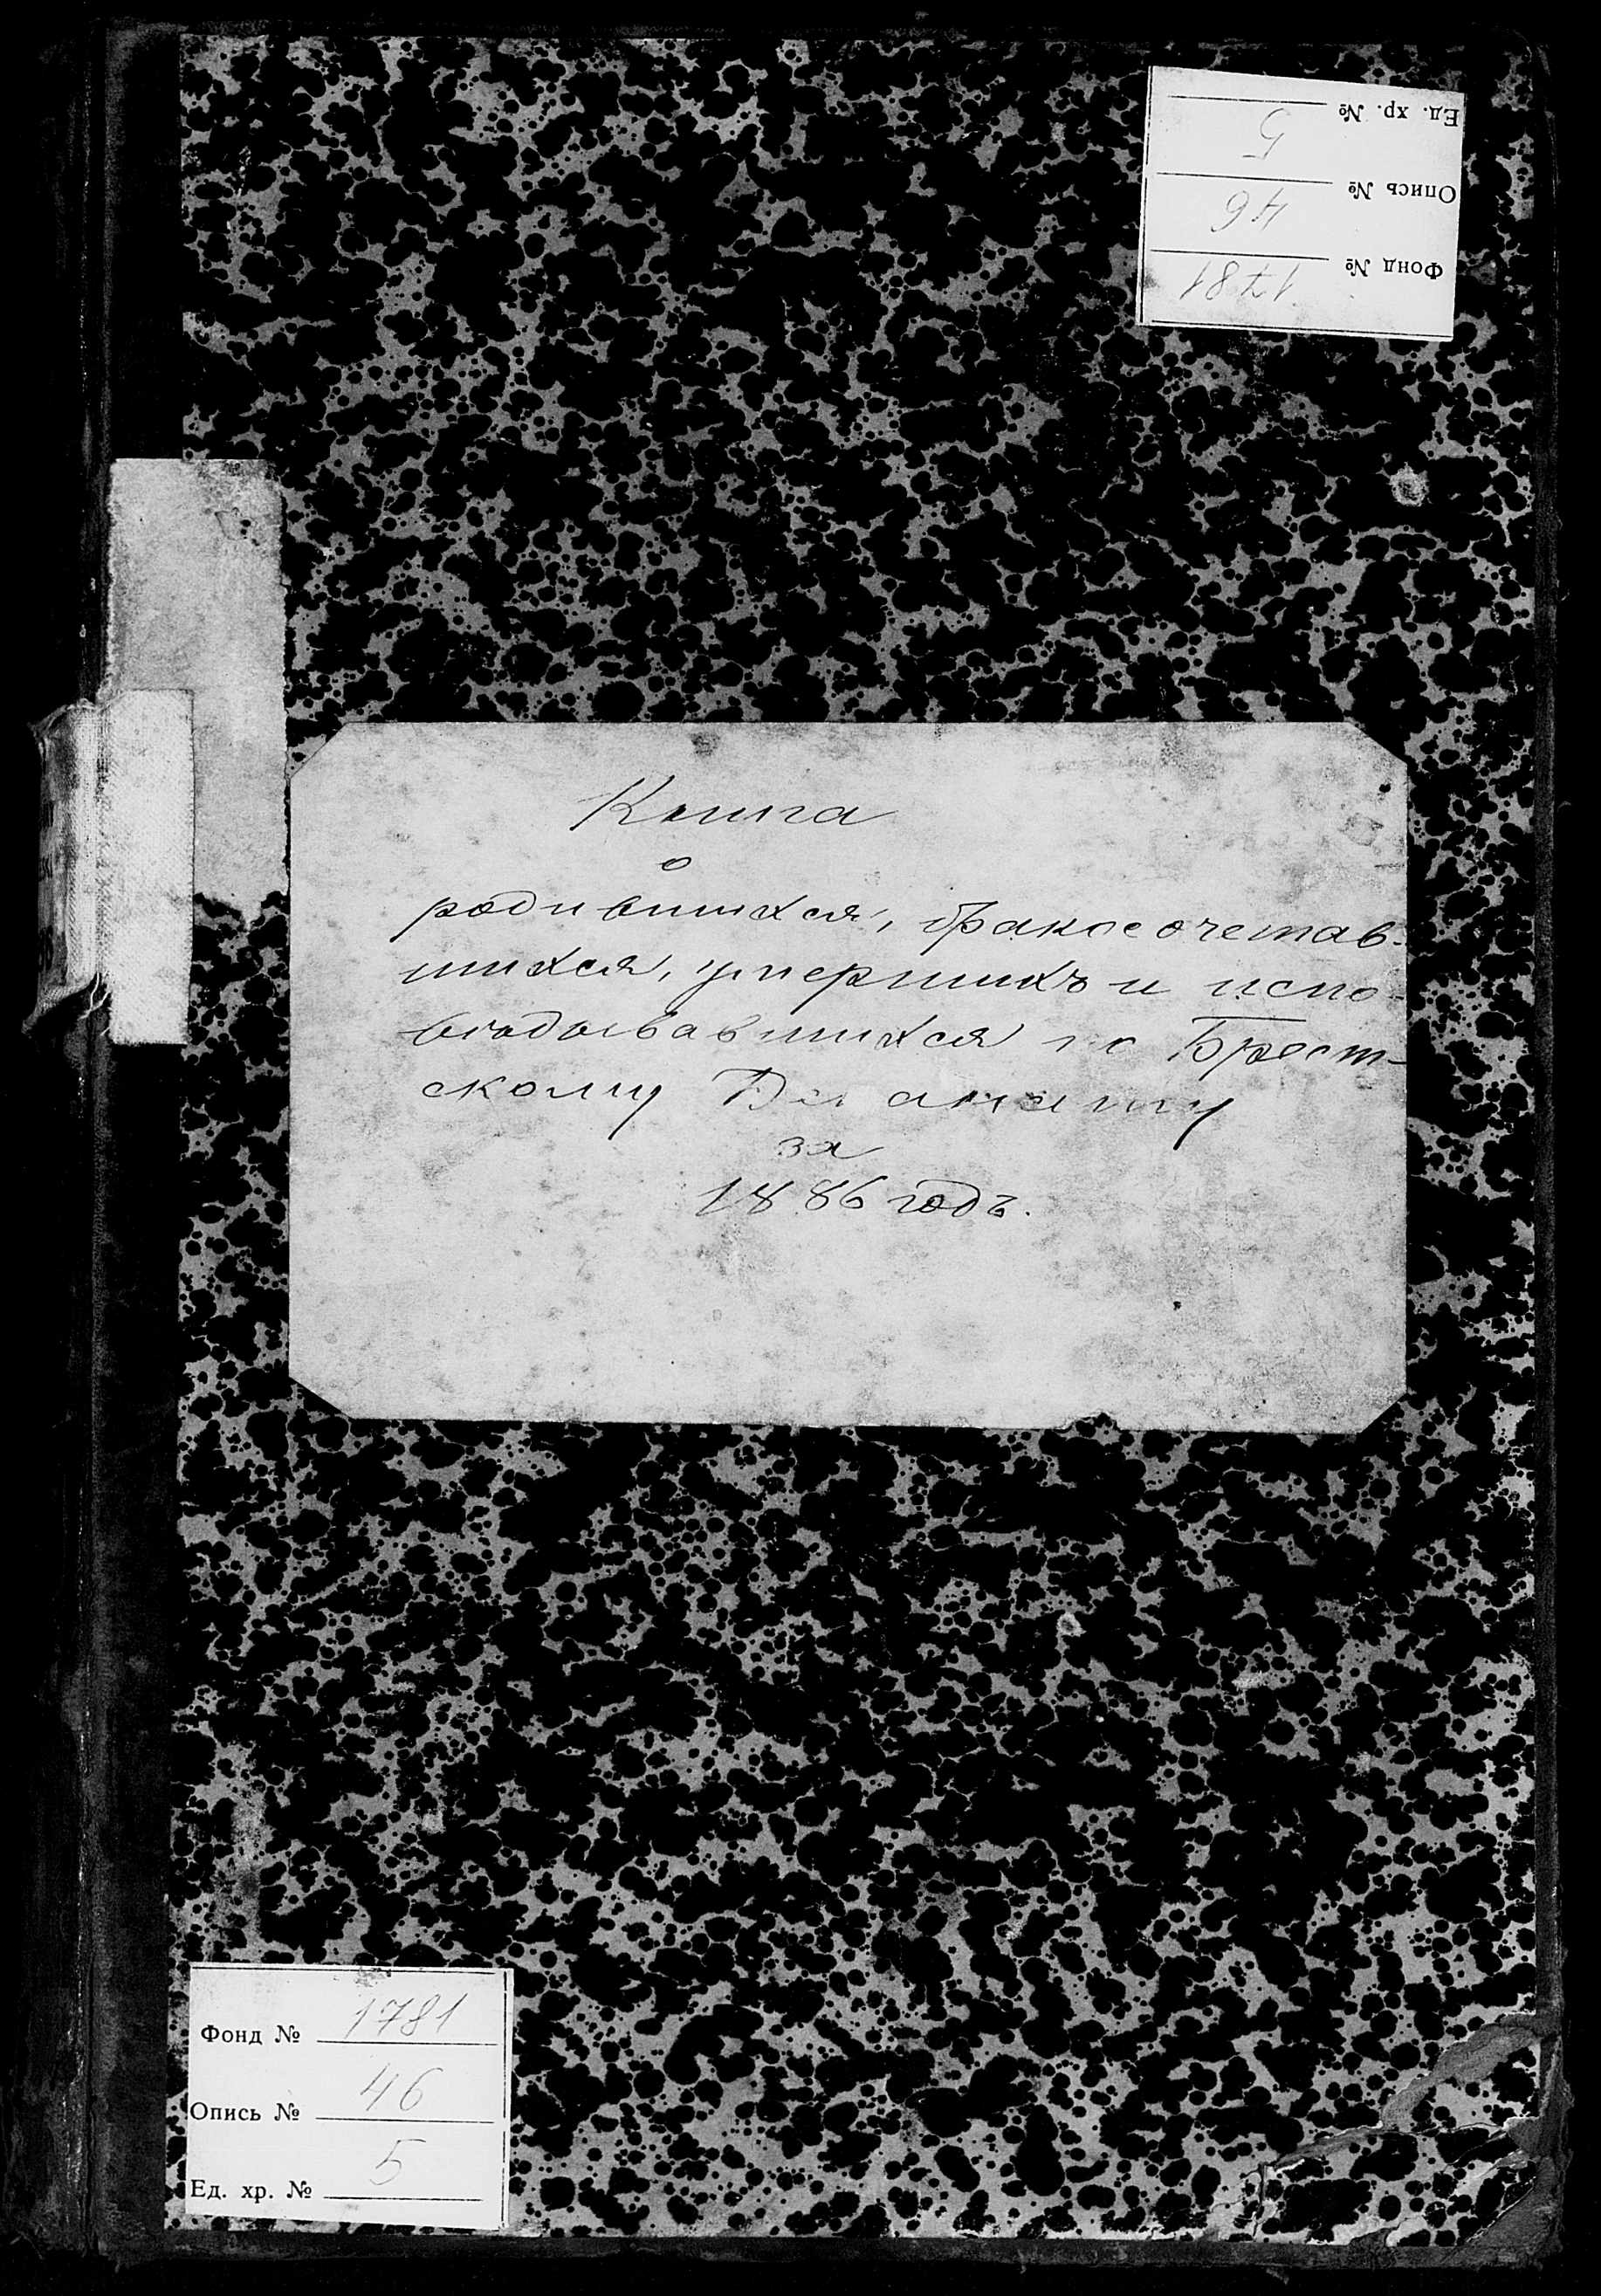 Ед. хр. №
5
Опись №
46
Фонд №
1781
Книга
о
родившихся, бракосочетав-
шихся, умершихъ и испо-
вѣдывавшихся по Брест-
скому Деканату
за
1886 годъ.
Фонд № 1781
Опись № 46
Ед. хр. № 5